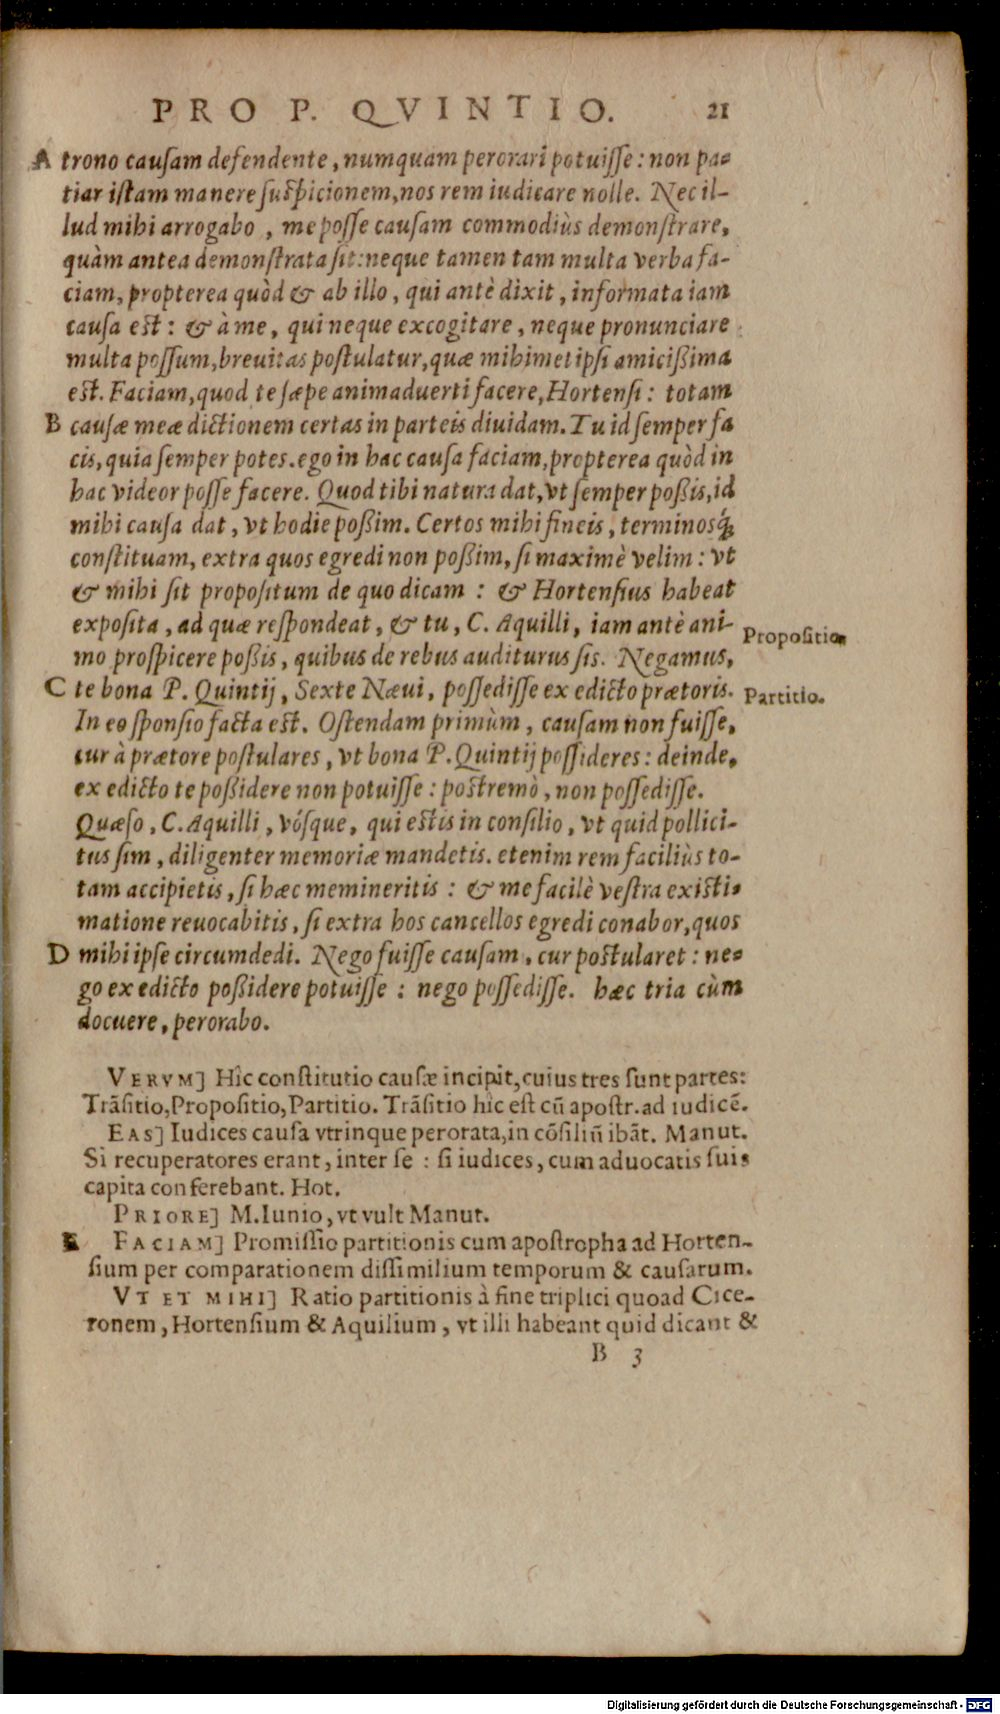 PRO P. QVINTIO. 21
A trono causam defendente, numquam perorari potuisse: non pa-
tiar istam manere suspicionem, nos rem iudicare nolle. Nec il-
lud mihi arrogabo, me posse causam commodiùs demonstrare,
quàm antea demonstrata sit: neque tamen tam multa verba fa-
ciam, propterea quòd & ab illo, qui antè dixit, informata iam
causa est: & à me, qui neque excogitare, neque pronunciare
multa possum, breuitas postulatur, quæ mihimet ipsi amicißima
est. Faciam, quod te sæpe animaduerti facere, Hortensi: totam
B causæ meæ dictionem certas in parteis diuidam. Tu id semper fa
cis, quia semper potes. ego in hac causa faciam, propterea quòd in
hac videor posse facere. Quod tibi natura dat, vt semper poßis, id
mihi causa dat, vt hodie poßim. Certos mihi fineis, terminosq́;
constituam, extra quos egredi non poßim, si maximè velim: vt
& mihi sit propositum de quo dicam: & Hortensius habeat
exposita, ad quæ respondeat, & tu, C. Aquilli, iam antè ani-
Propositio
mo prospicere poßis, quibus de rebus auditurus sis. Negamus,
C te bona P. Quintij, Sexte Næui, possedisse ex edicto prætoris.
Partitio.
In eo sponsio facta est. Ostendam primùm, causam non fuisse,
cur à prætore postulares, vt bona P. Quintij possideres: deinde,
ex edicto te poßidere non potuisse: postremò, non possedisse.
Quæso, C. Aquilli, vósque, qui estis in consilio, vt quid pollici-
tus sim, diligenter memoriæ mandetis. etenim rem faciliùs to-
tam accipietis, si hæc memineritis: & me facilè vestra existi-
matione reuocabitis, si extra hos cancellos egredi conabor, quos
D mihi ipse circumdedi. Nego fuisse causam, cur postularet: ne-
go ex edicto poßidere potuisse: nego possedisse. hæc tria cùm
docuere, perorabo.
VERVM] Hîc constitutio causæ incipit, cuius tres sunt partes:
Trãsitio, Propositio, Partitio. Trãsitio hîc est cũ apostr. ad iudicẽ.
EAS] Iudices causa vtrinque perorata, in cõsiliũ ibãt. Manut.
Si recuperatores erant, inter se: si iudices, cum aduocatis suis
capita conferebant. Hot.
PRIORE] M. Iunio, vt vult Manut.
E FACIAM] Promissio partitionis cum apostropha ad Horten-
sium per comparationem dissimilium temporum & causarum.
VT ET MIHI] Ratio partitionis à fine triplici quoad Cice-
ronem, Hortensium & Aquilium, vt illi habeant quid dicant &
B 3
Digitalisierung gefördert durch die Deutsche Forschungsgemeinschaft - DFG